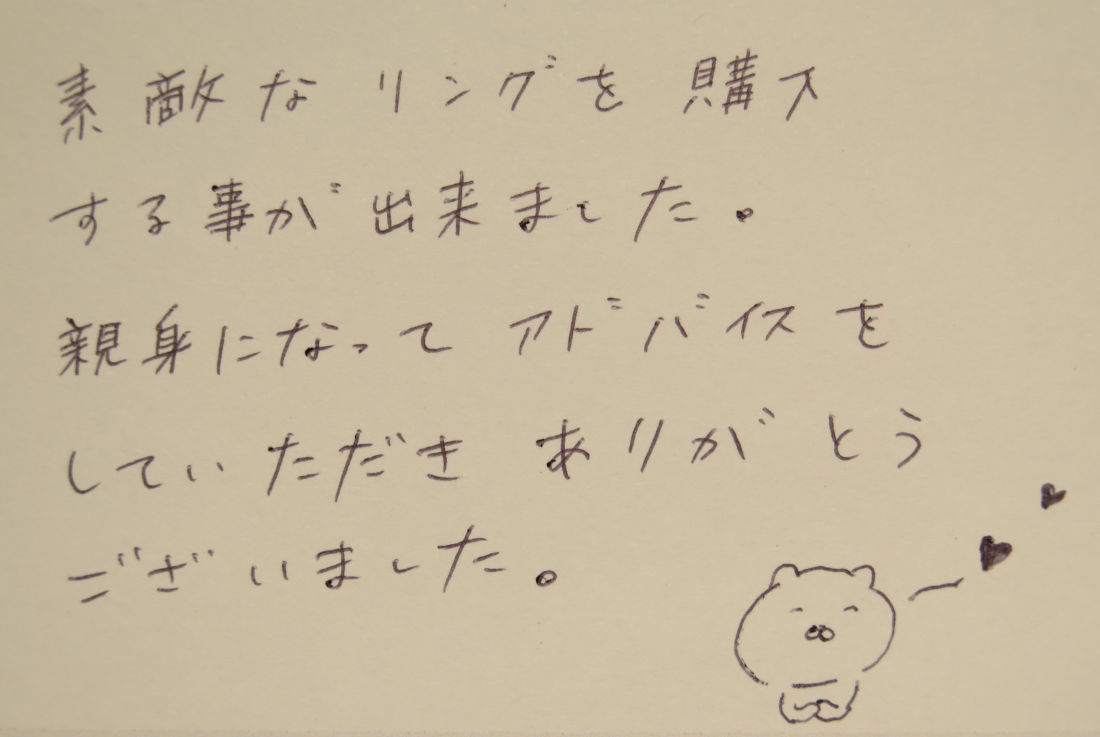 素敵なリングを購入
する事が出来ました。
親身になって アドバイスを
していただき ありがとう
ございました。